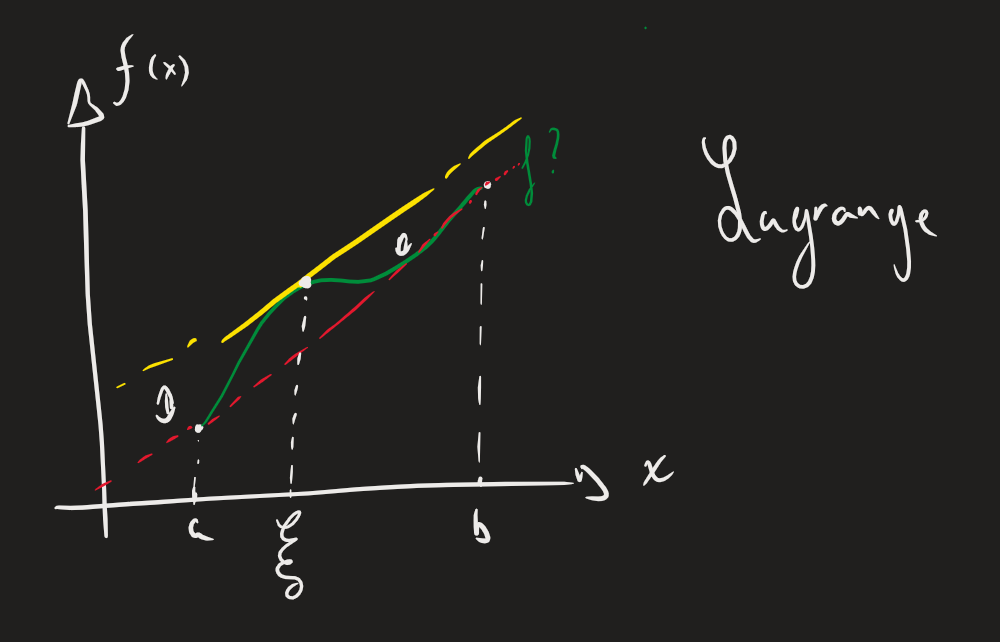 f(x)
f?
Lagrange
x
a
ξ
b